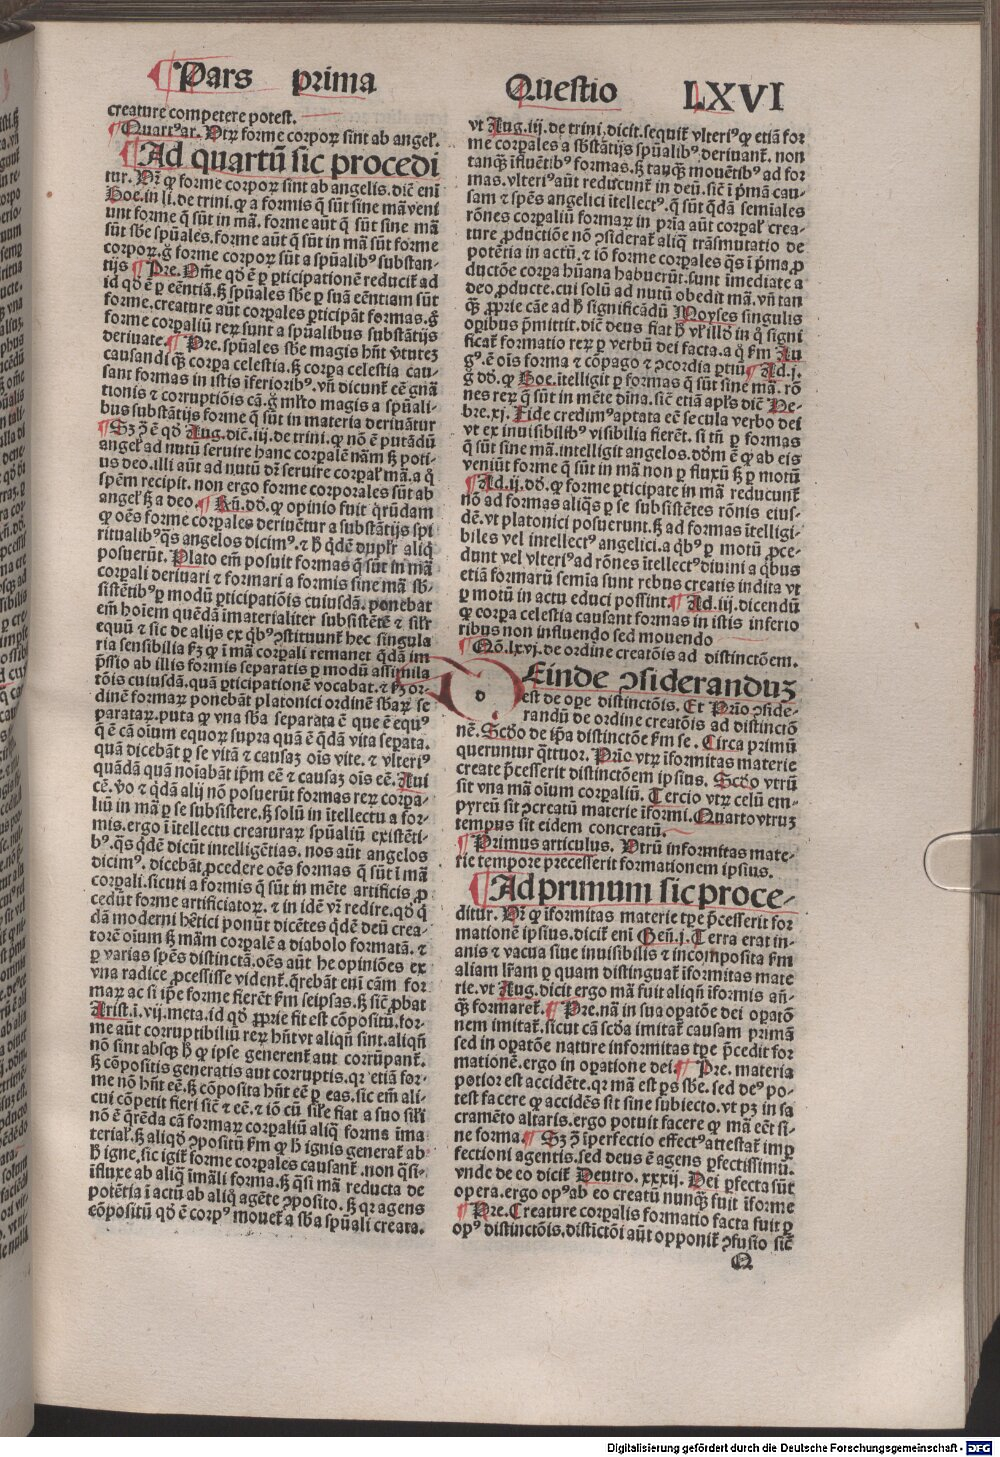 Pars prima Questio LXVI
creature competere potest.
Quartꝰ ar. Vtrꝫ forme corpoꝝ sint ab angeł.
Ad quartū sic procedi
tur. Vr̄ ꝙ forme corpoꝝ sint ab angelis. dic̄ enī
Boe. in li. de trini. ꝙ a formis q̄ sūt sine mā veni
unt forme q̄ sūt in mā. forme aūt q̄ sūt sine mā
sūt sbe spūales. forme aūt q̄ sūt in mā sūt forme
corpoꝝ. g̊ forme corpoꝝ sūt a spūalibꝰ substan-
tijs Pre. Om̄e qđ ē ꝑ ꝑticipationē reducit̄ ad
id qđ ē ꝑ eēntiā. sꝫ spūales sbe ꝑ suā eēntiam sūt
forme. creature aūt corpales ꝑticipāt formas. g̊
forme corpaliū reꝝ sunt a spūalibus substātijs
deriuate. Pre. spūales sbe magis hn̄t v̓tuteꝫ
causandi q̄ꝫ corpa celestia. sꝫ corpa celestia cau-
sant formas in istis īferioribꝰ. vn̄ dicunt̄ eē gn̄a
tionis ⁊ corruptiōis cā. g̊ ml̓to magis a spūali-
bus substātijs forme q̄ sūt in materia deriuātur
Sꝫ ↄ̄ ē qđ Aug. dic̄. iij. de trini. ꝙ nō ē putādū
angeł ad nutū seruire hanc corpalē nām sꝫ poti-
us deo. illi aūt ad nutū dr̄ seruire corpał mā. a q̊
spēm recipit. non ergo forme corporales sūt ab
angeł sꝫ a deo. Rn̄. dđ. ꝙ opinio fuit qrūdam
ꝙ oēs forme corpales deriuētur a substātijs spi
ritualibꝰ q̄s angelos dicimꝰ. ⁊ h̓ qđē duplr̄ aliq̄
posuerūt. Plato em̄ posuit formas q̄ sūt in mā
corpali deriuari ⁊ formari a formis sine mā sb̄-
sistētibꝰ ꝑ modū ꝑticipatiōis cuiusdā. ponebat
em̄ hoīem quēdā īmaterialiter subsistētē ⁊ sil̓r
equū ⁊ sic de alijs ex qbꝰ ↄstituunt̄ hec singula
ria sensibilia s̓m ꝙ ī mā corpali remanet qdā im
p̄ssio ab illis formis separatis ꝑ modū assimila
tōis cuiusdā. quā ꝑticipationē vocabat. ⁊ s̓m or-
dinē formaꝝ ponebāt platonici ordinē sbaꝝ se
parataꝝ. puta ꝙ vna sba separata ē que ē equꝰ
q̄ ē cā oīum equoꝝ supra quā ē qdā vita sepata.
quā dicebāt ꝑ se vitā ⁊ causaꝫ oīs vite. ⁊ vlteriꝰ
quādā quā noīabāt ip̄m eē ⁊ causaꝫ oīs eē. Aui
cē. v̓o ⁊ qdā alij nō posuerūt formas reꝝ corpa-
liū in mā ꝑ se subsistere. sꝫ solū in ītellectu a for-
mis. ergo ī ītellectu creaturaꝝ spūaliū existēti-
bꝰ. q̄s qđē dicūt intelligētias. nos aūt angelos
dicimꝰ. dicebāt ꝓcedere oēs formas q̄ sūt ī mā
corpali. sicuti a formis q̄ sūt in mēte artificis ꝓ
cedūt forme artificiatoꝝ. ⁊ in idē vr̄ redire. qđ q̄
dā moderni hētici ponūt dicētes qđē deū crea-
torē oīum sꝫ mām corpalē a diabolo formatā. ⁊
ꝑ varias spēs distinctā. oēs aūt he opiniōes ex
vna radice ꝓcessisse vident̄. q̄rebāt enī cām for
maꝝ ac si ip̄e forme fierēt s̓m seipsas. sꝫ sic̄ ꝓbat
Arist. ī. vij. meta. id qđ ꝓprie fit est cōpositū. for-
me aūt corruptibiliū reꝝ hn̄t vt aliqn̄ sint. aliqn̄
nō sint absqꝫ h̓ ꝙ ipse generent̄ aut corrūpant̄.
sꝫ cōpositis generatis aut corruptis. qꝛ etiā for-
me nō hn̄t eē. sꝫ cōposita hn̄t eē ꝑ eas. sic em̄ ali-
cui cōpetit fieri sic̄ ⁊ eē. ⁊ iō cū sil̓e fiat a suo sił̓i
nō ē q̄rēda cā formaꝝ corpaliū aliq̄ forma īma
teriał. sꝫ aliqđ ↄpositū s̓m ꝙ h̓ ignis generat̄ ab
h̓ igne. sic igit̄ forme corpales causant̄. non q̄si-
īfluxe ab aliq̄ īmāli forma. sꝫ q̄si mā reducta de
potētia ī actū ab aliq̊ agēte ↄposito. sꝫ qꝛ agens
cōpositū qđ ē corpꝰ mouet̄ a sba spūali creata.
vt Aug. iij. de trini. dicit. sequit̄ vlteriꝰ ꝙ etiā for
me corpales a sb̄stātijs spūalibꝰ deriuant̄. non
tanqꝫ īfluētibꝰ formas. sꝫ tanqꝫ mouētibꝰ ad for
mas. vlteriꝰ aūt reducunt̄ in deū. sic̄ ī p̓mā cau-
sam ⁊ spēs angelici ītellectꝰ. q̄ sūt qdā semīales
rōnes corpaliū formaꝝ in pria aūt corpał crea-
ture ꝓductiōe nō ↄsiderat̄ aliq̄ trāsmutatio de
potētia in actū. ⁊ iō forme corpales q̄s ī p̓ma ꝓ
ductōe corpa hūana habuerūt. sunt īmediate a
deo ꝓducte. cui solū ad nutū obedit mā. vn̄ tan
qꝫ ꝓprie cāe ad h̓ significādū Moyses singulis
oꝑibus p̄mittit. dic̄ deus fiat h̓ vł illđ in q̊ signi
ficat̄ formatio reꝝ ꝑ verbū dei facta. a q̊ s̓m Au
gꝰ. ē oīs forma ⁊ cōpago ⁊ ↄcordia ꝑtiū Ad. j.
g̊ dđ. ꝙ Boe. ītelligit ꝑ formas q̄ sūt sine mā. rō
nes reꝝ q̄ sūt in mēte dīna. sic̄ etiā apl̓s dic̄ He-
bre. xj. Fide credimꝰ aptata eē secula verbo dei
vt ex inuisibilibꝰ visibilia fierēt. si tn̄ ꝑ formas
q̄ sūt sine mā. intelligit angelos. dđm ē ꝙ ab eis
veniūt forme q̄ sūt in mā non ꝑ fluxū sꝫ ꝑ motū
Ad. ij. dđ. ꝙ forme ꝑticipate in mā reducunt̄
nō ad formas aliq̄s ꝑ se subsistētes rōnis eius-
dē. vt platonici posuerunt. sꝫ ad formas ītelligi-
biles vel intellectꝰ angelici. a qbꝰ ꝑ motū ꝓce-
dunt vel vlteriꝰ ad rōnes ītellectꝰ diuini a qbus
etiā formarū semīa sunt rebus creatis indita vt
ꝑ motū in actu educi possint. Ad. iij. dicendū
ꝙ corpa celestia causant formas in istis inferio
ribus non influendo sed mouendo
Qō. lxvj. de ordine creatōis ad distinctōem.
DEinde ↄsideranduꝫ
est de oꝑe distinctōis. Et Prio ↄside-
randū de ordine creatōis ad distinctō
nē. Scđo de ip̄a distinctōe s̓m se. Circa primū
queruntur qttuor. Prio vtꝝ īformitas materie
create p̄cesserit distinctōem ipsius. Scđo vtrū
sit vna mā oīum corpaliū. Tercio vtꝝ celū em-
pyreū sit ↄcreatū materie īformi. Quarto vtruꝫ
tempus sit eidem concreatū.
Primus articulus. Vtrū informitas mate-
rie tempore precesserit formationem ipsius.
Ad primum sic proce-
ditur. Vr̄ ꝙ īformitas materie tꝑe p̄cesserit for
mationē ipsius. dicit̄ enī Gen̄. j. Terra erat in-
anis ⁊ vacua siue inuisibilis ⁊ incomposita s̓m
aliam lr̄am ꝑ quam distinguat̄ īformitas mate
rie. vt Aug. dicit ergo mā fuit aliqn̄ īformis an̄-
qꝫ formaret̄. Pre. nā in sua oꝑatōe dei oꝑatō
nem imitat̄. sicut cā scđa imitat̄ causam primā
sed in oꝑatōe nature informitas tꝑe p̄cedit for
mationē. ergo in oꝑatione dei Pre. materia
potior est accidēte. qꝛ mā est ꝑs sbe. sed deꝰ po-
test facere ꝙ accidēs sit sine subiecto. vt pꝫ in sa
cramēto altaris. ergo potuit facere ꝙ mā eēt si-
ne forma. Sꝫ ↄ̄ īperfectio effectꝰ attestat̄ imꝑ
fectioni agentis. sed deus ē agens ꝑfectissimū.
vnde de eo dicit̄ Deutro. xxxij. Dei ꝑfecta sūt
opera. ergo opꝰ ab eo creatū nunqꝫ fuit īforme
Pre. Creature corpalis formatio facta fuit ꝑ
opꝰ distinctōis. distictōi aūt opponit̄ ↄfusio sic̄
Digitalisierung gefördert durch die Deutsche Forschungsgemeinschaft - DFG